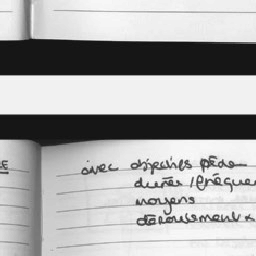 avec objectifs péda
durées / fréquen
moyens
déroulement